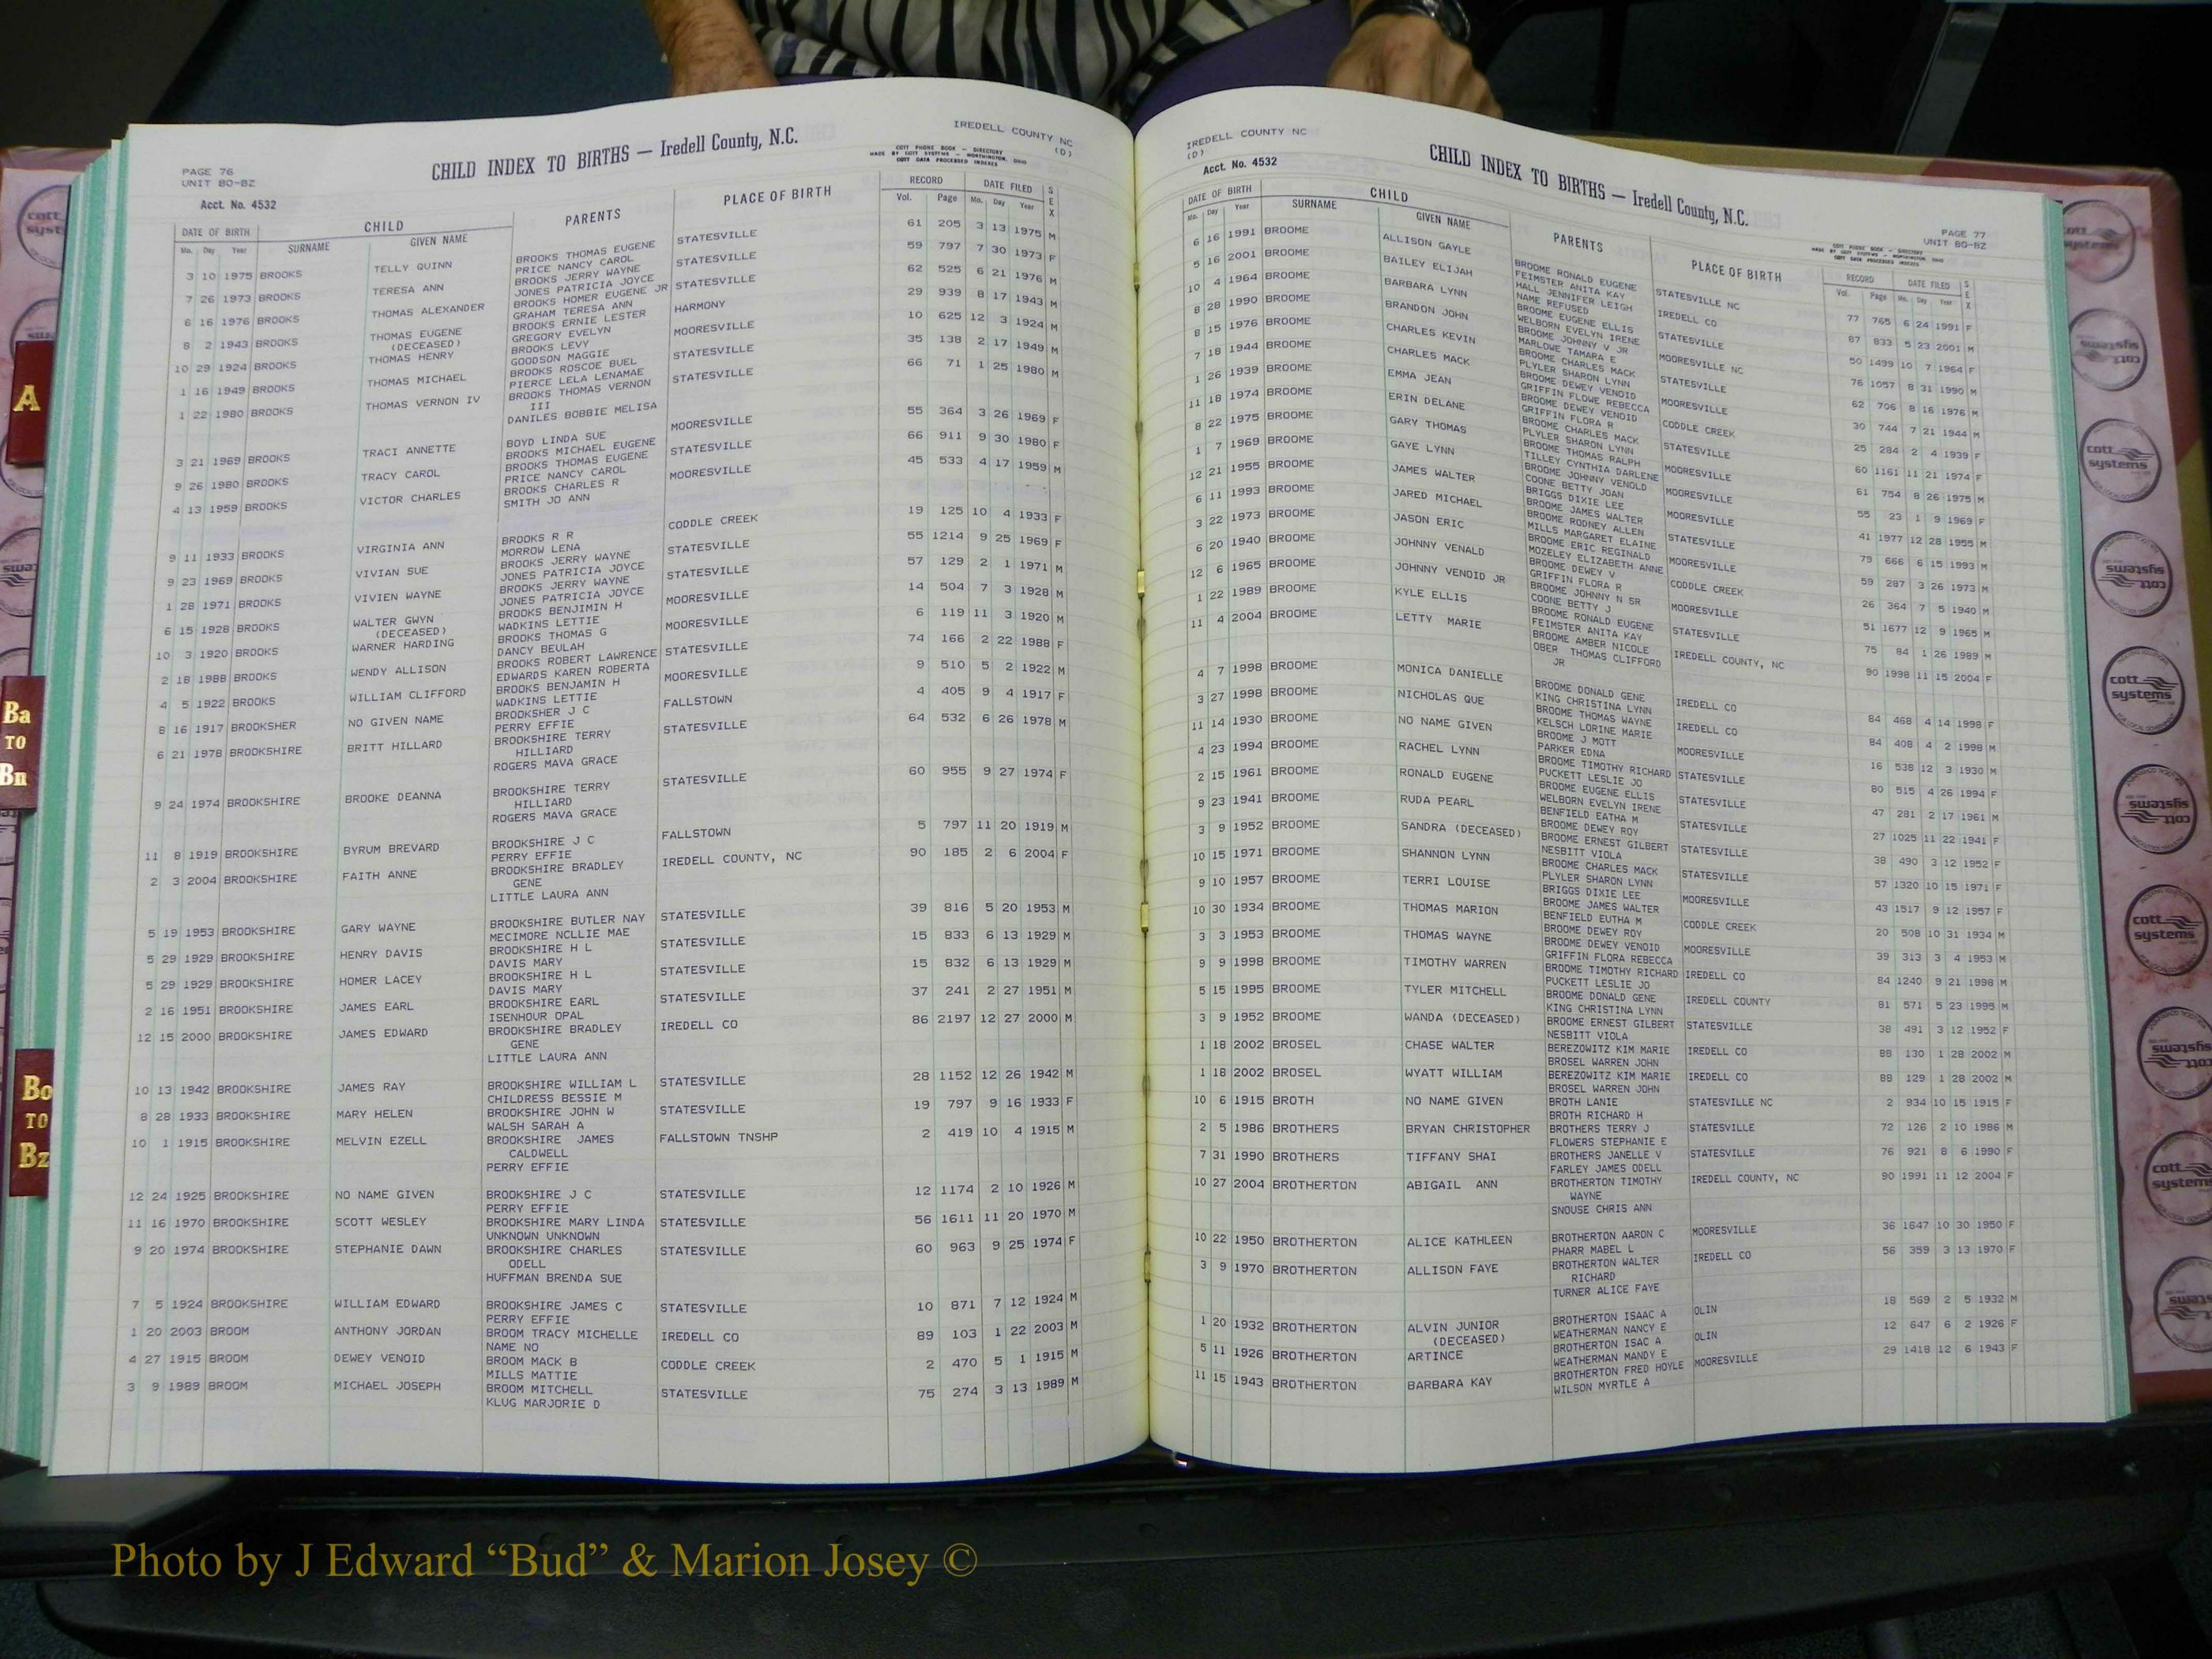 CHILD INDEX TO BIRTHS — Iredell County, N.C.
IREDELL COUNTY NC
(D)
COTT PHONE BOOK - DIRECTORY
MADE BY COTT SYSTEMS - WORTHINGTON, OHIO
COTT DATA PROCESSED INDEXES
PAGE 76
UNIT BO-BZ
Acct. No. 4532
DATE OF BIRTH CHILD PARENTS PLACE OF BIRTH RECORD DATE FILED SEX
Mo. Day Year SURNAME GIVEN NAME Vol. Page Mo. Day Year
3 10 1975 BROOKS TELLY QUINN BROOKS THOMAS EUGENE STATESVILLE 61 205 3 13 1975 M
PRICE NANCY CAROL
7 26 1973 BROOKS TERESA ANN BROOKS JERRY WAYNE STATESVILLE 59 797 7 30 1973 F
JONES PATRICIA JOYCE
6 16 1976 BROOKS THOMAS ALEXANDER BROOKS HOMER EUGENE JR STATESVILLE 62 525 6 21 1976 M
GRAHAM TERESA ANN
8 2 1943 BROOKS THOMAS EUGENE BROOKS ERNIE LESTER HARMONY 29 939 8 17 1943 M
(DECEASED) GREGORY EVELYN
10 29 1924 BROOKS THOMAS HENRY BROOKS LEVY MOORESVILLE 10 625 12 3 1924 M
GOODSON MAGGIE
1 16 1949 BROOKS THOMAS MICHAEL BROOKS ROSCOE BUEL STATESVILLE 35 138 2 17 1949 M
PIERCE LELA LENAMAE
1 22 1980 BROOKS THOMAS VERNON IV BROOKS THOMAS VERNON STATESVILLE 66 71 1 25 1980 M
III
DANILES BOBBIE MELISA
3 21 1969 BROOKS TRACI ANNETTE BOYD LINDA SUE MOORESVILLE 55 364 3 26 1969 F
BROOKS MICHAEL EUGENE
9 26 1980 BROOKS TRACY CAROL BROOKS THOMAS EUGENE STATESVILLE 66 911 9 30 1980 F
PRICE NANCY CAROL
4 13 1959 BROOKS VICTOR CHARLES BROOKS CHARLES R MOORESVILLE 45 533 4 17 1959 M
SMITH JO ANN
9 11 1933 BROOKS VIRGINIA ANN BROOKS R R CODDLE CREEK 19 125 10 4 1933 F
MORROW LENA
9 23 1969 BROOKS VIVIAN SUE BROOKS JERRY WAYNE STATESVILLE 55 1214 9 25 1969 F
JONES PATRICIA JOYCE
1 28 1971 BROOKS VIVIEN WAYNE BROOKS JERRY WAYNE STATESVILLE 57 129 2 1 1971 M
JONES PATRICIA JOYCE
6 15 1928 BROOKS WALTER GWYN BROOKS BENJIMIN H MOORESVILLE 14 504 7 3 1928 M
(DECEASED) WADKINS LETTIE
10 3 1920 BROOKS WARNER HARDING BROOKS THOMAS G MOORESVILLE 6 119 11 3 1920 M
DANCY BEULAH
2 18 1988 BROOKS WENDY ALLISON BROOKS ROBERT LAWRENCE STATESVILLE 74 166 2 22 1988 F
EDWARDS KAREN ROBERTA
4 5 1922 BROOKS WILLIAM CLIFFORD BROOKS BENJAMIN H MOORESVILLE 9 510 5 2 1922 M
WADKINS LETTIE
8 16 1917 BROOKSHER NO GIVEN NAME BROOKSHER J C FALLSTOWN 4 405 9 4 1917 F
PERRY EFFIE
6 21 1978 BROOKSHIRE BRITT HILLARD BROOKSHIRE TERRY STATESVILLE 64 532 6 26 1978 M
HILLIARD
ROGERS MAVA GRACE
9 24 1974 BROOKSHIRE BROOKE DEANNA BROOKSHIRE TERRY STATESVILLE 60 955 9 27 1974 F
HILLIARD
ROGERS MAVA GRACE
11 8 1919 BROOKSHIRE BYRUM BREVARD BROOKSHIRE J C FALLSTOWN 5 797 11 20 1919 M
PERRY EFFIE
2 3 2004 BROOKSHIRE FAITH ANNE BROOKSHIRE BRADLEY IREDELL COUNTY, NC 90 185 2 6 2004 F
GENE
LITTLE LAURA ANN
5 19 1953 BROOKSHIRE GARY WAYNE BROOKSHIRE BUTLER NAY STATESVILLE 39 816 5 20 1953 M
MECIMORE NCLLIE MAE
5 29 1929 BROOKSHIRE HENRY DAVIS BROOKSHIRE H L STATESVILLE 15 833 6 13 1929 M
DAVIS MARY
5 29 1929 BROOKSHIRE HOMER LACEY BROOKSHIRE H L STATESVILLE 15 832 6 13 1929 M
DAVIS MARY
2 16 1951 BROOKSHIRE JAMES EARL BROOKSHIRE EARL STATESVILLE 37 241 2 27 1951 M
ISENHOUR OPAL
12 15 2000 BROOKSHIRE JAMES EDWARD BROOKSHIRE BRADLEY IREDELL CO 86 2197 12 27 2000 M
GENE
LITTLE LAURA ANN
10 13 1942 BROOKSHIRE JAMES RAY BROOKSHIRE WILLIAM L STATESVILLE 28 1152 12 26 1942 M
CHILDRESS BESSIE M
8 28 1933 BROOKSHIRE MARY HELEN BROOKSHIRE JOHN W STATESVILLE 19 797 9 16 1933 F
WALSH SARAH A
10 1 1915 BROOKSHIRE MELVIN EZELL BROOKSHIRE JAMES FALLSTOWN TNSHP 2 419 10 4 1915 M
CALDWELL
PERRY EFFIE
12 24 1925 BROOKSHIRE NO NAME GIVEN BROOKSHIRE J C STATESVILLE 12 1174 2 10 1926 M
PERRY EFFIE
11 16 1970 BROOKSHIRE SCOTT WESLEY BROOKSHIRE MARY LINDA STATESVILLE 56 1611 11 20 1970 M
UNKNOWN UNKNOWN
9 20 1974 BROOKSHIRE STEPHANIE DAWN BROOKSHIRE CHARLES STATESVILLE 60 963 9 25 1974 F
ODELL
HUFFMAN BRENDA SUE
7 5 1924 BROOKSHIRE WILLIAM EDWARD BROOKSHIRE JAMES C STATESVILLE 10 871 7 12 1924 M
PERRY EFFIE
1 20 2003 BROOM ANTHONY JORDAN BROOM TRACY MICHELLE IREDELL CO 89 103 1 22 2003 M
NAME NO
4 27 1915 BROOM DEWEY VENOID BROOM MACK B CODDLE CREEK 2 470 5 1 1915 M
MILLS MATTIE
3 9 1989 BROOM MICHAEL JOSEPH BROOM MITCHELL STATESVILLE 75 274 3 13 1989 M
KLUG MARJORIE D
IREDELL COUNTY NC
(D)
Acct. No. 4532
CHILD INDEX TO BIRTHS — Iredell County, N.C.
PAGE 77
UNIT BO-BZ
COTT PHONE BOOK - DIRECTORY
MADE BY COTT SYSTEMS - WORTHINGTON, OHIO
COTT DATA PROCESSED INDEXES
DATE OF BIRTH CHILD PARENTS PLACE OF BIRTH RECORD DATE FILED SEX
Mo. Day Year SURNAME GIVEN NAME Vol. Page Mo. Day Year
6 16 1991 BROOME ALLISON GAYLE BROOME RONALD EUGENE STATESVILLE NC 77 765 6 24 1991 F
FEIMSTER ANITA KAY
5 16 2001 BROOME BAILEY ELIJAH HALL JENNIFER LEIGH IREDELL CO 87 833 5 23 2001 M
NAME REFUSED
10 4 1964 BROOME BARBARA LYNN BROOME EUGENE ELLIS STATESVILLE 50 1499 10 7 1964 F
WELBORN EVELYN IRENE
8 28 1990 BROOME BRANDON JOHN BROOME JOHNNY V JR MOORESVILLE NC 76 1057 8 31 1990 M
MARLOWE TAMARA E
8 15 1976 BROOME CHARLES KEVIN BROOME CHARLES MACK STATESVILLE 62 706 8 16 1976 M
PLYLER SHARON LYNN
7 18 1944 BROOME CHARLES MACK BROOME DEWEY VENOID MOORESVILLE 30 744 7 21 1944 M
GRIFFIN FLOWE REBECCA
1 26 1939 BROOME EMMA JEAN BROOME DEWEY VENOID CODDLE CREEK 25 284 2 4 1939 F
GRIFFIN FLORA R
11 18 1974 BROOME ERIN DELANE BROOME CHARLES MACK STATESVILLE 60 1161 11 21 1974 F
PLYLER SHARON LYNN
8 22 1975 BROOME GARY THOMAS BROOME THOMAS RALPH MOORESVILLE 61 754 8 26 1975 M
TILLEY CYNTHIA DARLENE
1 7 1969 BROOME GAYE LYNN BROOME JOHNNY VENOLD MOORESVILLE 55 23 1 9 1969 F
COONE BETTY JOAN
12 21 1955 BROOME JAMES WALTER BRIGGS DIXIE LEE MOORESVILLE 41 1977 12 28 1955 M
BROOME JAMES WALTER
6 11 1993 BROOME JARED MICHAEL BROOME RODNEY ALLEN STATESVILLE 79 666 6 15 1993 M
MILLS MARGARET ELAINE
3 22 1973 BROOME JASON ERIC BROOME ERIC REGINALD MOORESVILLE 59 287 3 26 1973 M
MOZELEY ELIZABETH ANNE
6 20 1940 BROOME JOHNNY VENALD BROOME DEWEY V CODDLE CREEK 26 364 7 5 1940 M
GRIFFIN FLORA R
12 6 1965 BROOME JOHNNY VENOID JR BROOME JOHNNY N SR MOORESVILLE 51 1677 12 9 1965 M
COONE BETTY J
1 22 1989 BROOME KYLE ELLIS BROOME RONALD EUGENE STATESVILLE 75 84 1 26 1989 M
FEIMSTER ANITA KAY
11 4 2004 BROOME LETTY MARIE BROOME AMBER NICOLE IREDELL COUNTY, NC 90 1998 11 15 2004 F
OBER THOMAS CLIFFORD
JR
4 7 1998 BROOME MONICA DANIELLE BROOME DONALD GENE IREDELL CO 84 468 4 14 1998 F
KING CHRISTINA LYNN
3 27 1998 BROOME NICHOLAS QUE BROOME THOMAS WAYNE IREDELL CO 84 408 4 2 1998 M
KELSCH LORINE MARIE
11 14 1930 BROOME NO NAME GIVEN BROOME J MOTT MOORESVILLE 16 538 12 3 1930 M
PARKER EDNA
4 23 1994 BROOME RACHEL LYNN BROOME TIMOTHY RICHARD STATESVILLE 80 515 4 26 1994 F
PUCKETT LESLIE JO
2 15 1961 BROOME RONALD EUGENE BROOME EUGENE ELLIS STATESVILLE 47 281 2 17 1961 M
WELBORN EVELYN IRENE
9 23 1941 BROOME RUDA PEARL BENFIELD EATHA M STATESVILLE 27 1025 11 22 1941 F
BROOME DEWEY ROY
3 9 1952 BROOME SANDRA (DECEASED) BROOME ERNEST GILBERT STATESVILLE 38 490 3 12 1952 F
NESBITT VIOLA
10 15 1971 BROOME SHANNON LYNN BROOME CHARLES MACK STATESVILLE 57 1320 10 15 1971 F
PLYLER SHARON LYNN
9 10 1957 BROOME TERRI LOUISE BRIGGS DIXIE LEE MOORESVILLE 43 1517 9 12 1957 F
BROOME JAMES WALTER
10 30 1934 BROOME THOMAS MARION BENFIELD EUTHA M CODDLE CREEK 20 508 10 31 1934 M
BROOME DEWEY ROY
3 3 1953 BROOME THOMAS WAYNE BROOME DEWEY VENOID MOORESVILLE 39 313 3 4 1953 M
GRIFFIN FLORA REBECCA
9 9 1998 BROOME TIMOTHY WARREN BROOME TIMOTHY RICHARD IREDELL CO 84 1240 9 21 1998 M
PUCKETT LESLIE JO
5 15 1995 BROOME TYLER MITCHELL BROOME DONALD GENE IREDELL COUNTY 81 571 5 23 1995 M
KING CHRISTINA LYNN
3 9 1952 BROOME WANDA (DECEASED) BROOME ERNEST GILBERT STATESVILLE 38 491 3 12 1952 F
NESBITT VIOLA
1 18 2002 BROSEL CHASE WALTER BEREZOWITZ KIM MARIE IREDELL CO 88 130 1 28 2002 M
BROSEL WARREN JOHN
1 18 2002 BROSEL WYATT WILLIAM BEREZOWITZ KIM MARIE IREDELL CO 88 129 1 28 2002 M
BROSEL WARREN JOHN
10 6 1915 BROTH NO NAME GIVEN BROTH LANIE STATESVILLE NC 2 934 10 15 1915 F
BROTH RICHARD H
2 5 1986 BROTHERS BRYAN CHRISTOPHER BROTHERS TERRY J STATESVILLE 72 126 2 10 1986 M
FLOWERS STEPHANIE E
7 31 1990 BROTHERS TIFFANY SHAI BROTHERS JANELLE V STATESVILLE 76 921 8 6 1990 F
FARLEY JAMES ODELL
10 27 2004 BROTHERTON ABIGAIL ANN BROTHERTON TIMOTHY IREDELL COUNTY, NC 90 1991 11 12 2004 F
WAYNE
SNOUSE CHRIS ANN
10 22 1950 BROTHERTON ALICE KATHLEEN BROTHERTON AARON C MOORESVILLE 36 1647 10 30 1950 F
PHARR MABEL L
3 9 1970 BROTHERTON ALLISON FAYE BROTHERTON WALTER IREDELL CO 56 359 3 13 1970 F
RICHARD
TURNER ALICE FAYE
1 20 1932 BROTHERTON ALVIN JUNIOR BROTHERTON ISAAC A OLIN 18 569 2 5 1932 M
(DECEASED) WEATHERMAN NANCY E
5 11 1926 BROTHERTON ARTINCE BROTHERTON ISAC A OLIN 12 647 6 2 1926 F
WEATHERMAN MANDY E
11 15 1943 BROTHERTON BARBARA KAY BROTHERTON FRED HOYLE MOORESVILLE 29 1418 12 6 1943 F
WILSON MYRTLE A
A
Ba
TO
Bn
Bo
TO
Bz
cott
systems
Photo by J Edward “Bud” & Marion Josey ©